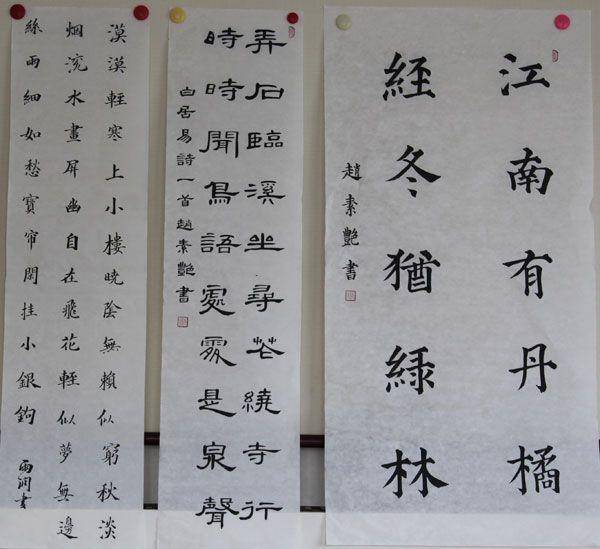 江南有丹橘
經冬猶綠林
趙素艷書
弄石臨溪坐尋花繞寺行
時時聞鳥語處處是泉聲
白居易詩一首趙素艷書
漠漠輕寒上小樓曉陰無賴似窮秋淡
烟流水畫屏幽自在飛花輕似夢無邊
絲雨細如愁寶帘閑挂小銀鉤
雨潤書